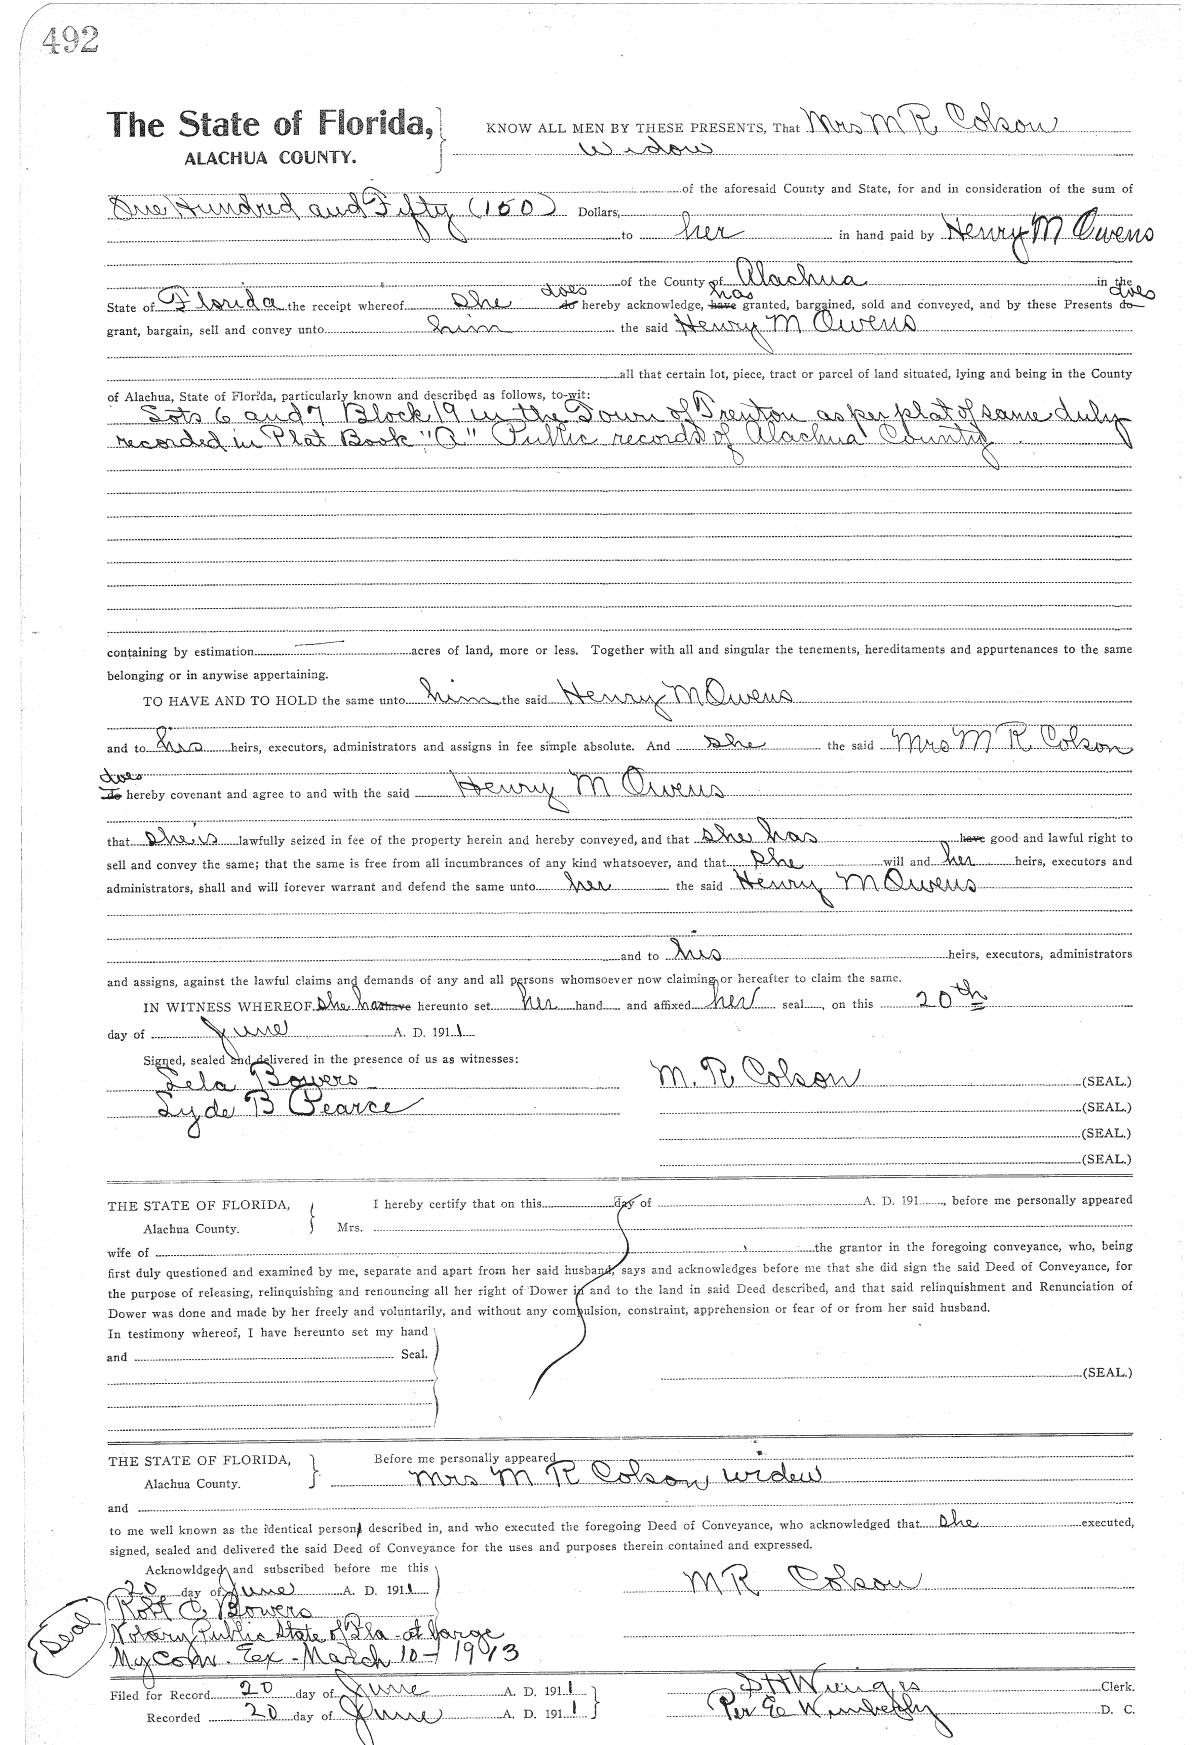 492
The State of Florida, KNOW ALL MEN BY THESE PRESENTS, That Mrs M R Colson
ALACHUA COUNTY. Widow
of the aforesaid County and State, for and in consideration of the sum of
One Hundred and Fifty (150) Dollars,
to her in hand paid by Henry M Owens
of the County of Alachua in the
does has does
State of Florida the receipt whereof she do hereby acknowledge, have granted, bargained, sold and conveyed, and by these Presents do
grant, bargain, sell and convey unto him the said Henry M Owens
all that certain lot, piece, tract or parcel of land situated, lying and being in the County
of Alachua, State of Florida, particularly known and described as follows, to-wit:
Lots 6 and 7 Block 19 in the Town of Trenton as per plat of same duly
recorded in Plat Book "A" Public records of Alachua County
containing by estimation acres of land, more or less. Together with all and singular the tenements, hereditaments and appurtenances to the same
belonging or in anywise appertaining.
TO HAVE AND TO HOLD the same unto him the said Henry M Owens
and to his heirs, executors, administrators and assigns in fee simple absolute. And she the said Mrs M R Colson
does
Do hereby covenant and agree to and with the said Henry M Owens
that she is lawfully seized in fee of the property herein and hereby conveyed, and that she has have good and lawful right to
sell and convey the same; that the same is free from all incumbrances of any kind whatsoever, and that she will and her heirs, executors and
administrators, shall and will forever warrant and defend the same unto her the said Henry M Owens
and to his heirs, executors, administrators
and assigns, against the lawful claims and demands of any and all persons whomsoever now claiming or hereafter to claim the same.
IN WITNESS WHEREOF she has have hereunto set her hand and affixed her seal, on this 20th
day of June A. D. 1911
Signed, sealed and delivered in the presence of us as witnesses:
Lela Bowers M. R Colson (SEAL.)
Lyde B Pearce (SEAL.)
(SEAL.)
(SEAL.)
THE STATE OF FLORIDA, I hereby certify that on this day of A. D. 191, before me personally appeared
Alachua County. Mrs.
wife of the grantor in the foregoing conveyance, who, being
first duly questioned and examined by me, separate and apart from her said husband, says and acknowledges before me that she did sign the said Deed of Conveyance, for
the purpose of releasing, relinquishing and renouncing all her right of Dower in and to the land in said Deed described, and that said relinquishment and Renunciation of
Dower was done and made by her freely and voluntarily, and without any compulsion, constraint, apprehension or fear of or from her said husband.
In testimony whereof, I have hereunto set my hand
and Seal.
(SEAL.)
THE STATE OF FLORIDA, Before me personally appeared
Alachua County. Mrs M R Colson, widow
and
to me well known as the identical person described in, and who executed the foregoing Deed of Conveyance, who acknowledged that she executed,
signed, sealed and delivered the said Deed of Conveyance for the uses and purposes therein contained and expressed.
Acknowldged and subscribed before me this
20 day of June A. D. 1911 M R Colson
Robt C Bowers
Seal Notary Public State of Fla at large
My Com. Ex. March 10 - 1913
Filed for Record 20 day of June A. D. 1911 S H Wienges Clerk.
Recorded 20 day of June A. D. 1911 Per E Wimberly D. C.